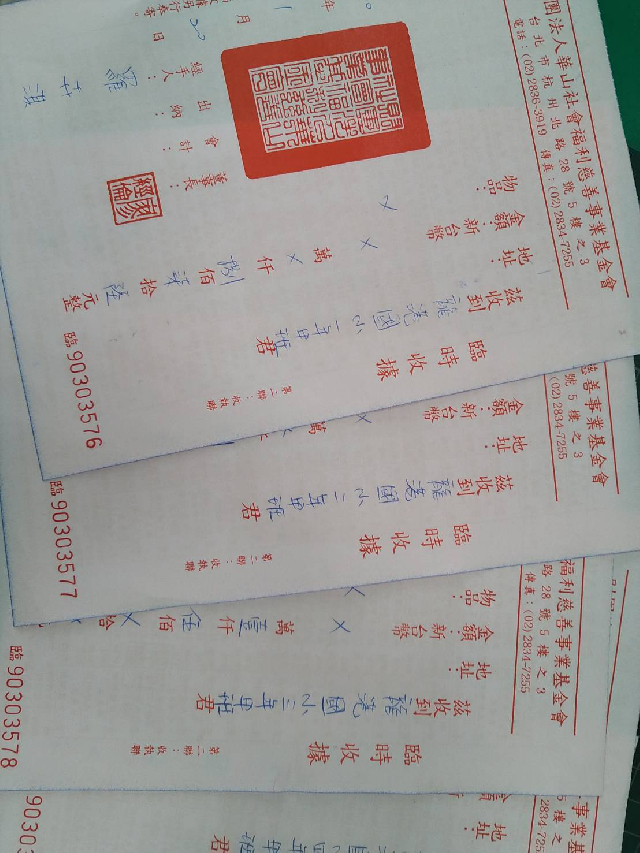 團法人華山社會福利慈善事業基金會
台北市杭州北路28號5樓之3
電話：(02)2836-3919 傳真：(02)2834-7255
臨時收據
第二聯：收執聯
茲收到 龍港國小一年甲班 君
地址：
金額：新台幣 × 萬 × 仟 捌 佰 柒 拾 陸 元整
物品：
董事長：
會計：
出納：
經手人：
年 1 月 20 日
臨 90303576
慈善事業基金會
號5樓之3
(02)2834-7255
臨時收據
第二聯：收執聯
茲收到 龍港國小二年甲班 君
地址：
金額：新台幣
臨 90303577
福利慈善事業基金會
路28號5樓之3
傳真：(02)2834-7255
臨時收據
第二聯：收執聯
茲收到 龍港國小三年甲班 君
地址：
金額：新台幣 × 萬 壹 仟 伍 佰 × 拾
物品：
臨 90303578
事業基
5樓
2834-725
地址：
國小四年甲班
君
9030